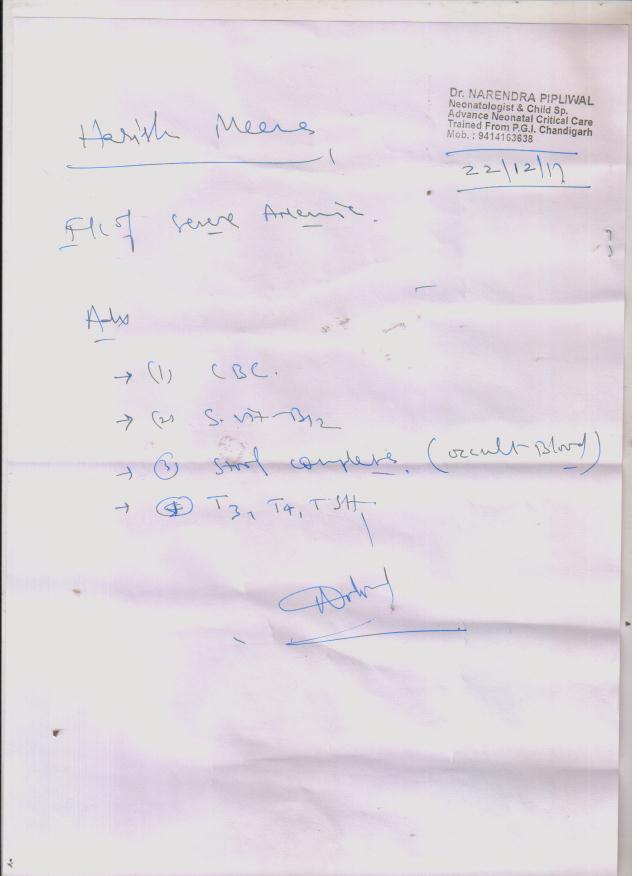 Dr. NARENDRA PIPLIWAL
Neonatologist & Child Sp.
Advance Neonatal Critical Care
Trained From P.G.I. Chandigarh
Mob. : 9414163638
22/12/17
Harish Meena
F/c of severe Anemia.
Adv
→ (1) CBC.
→ (2) S. vit-B12
→ (3) Stool complete. (occult Blood)
→ (4) T3, T4, TSH